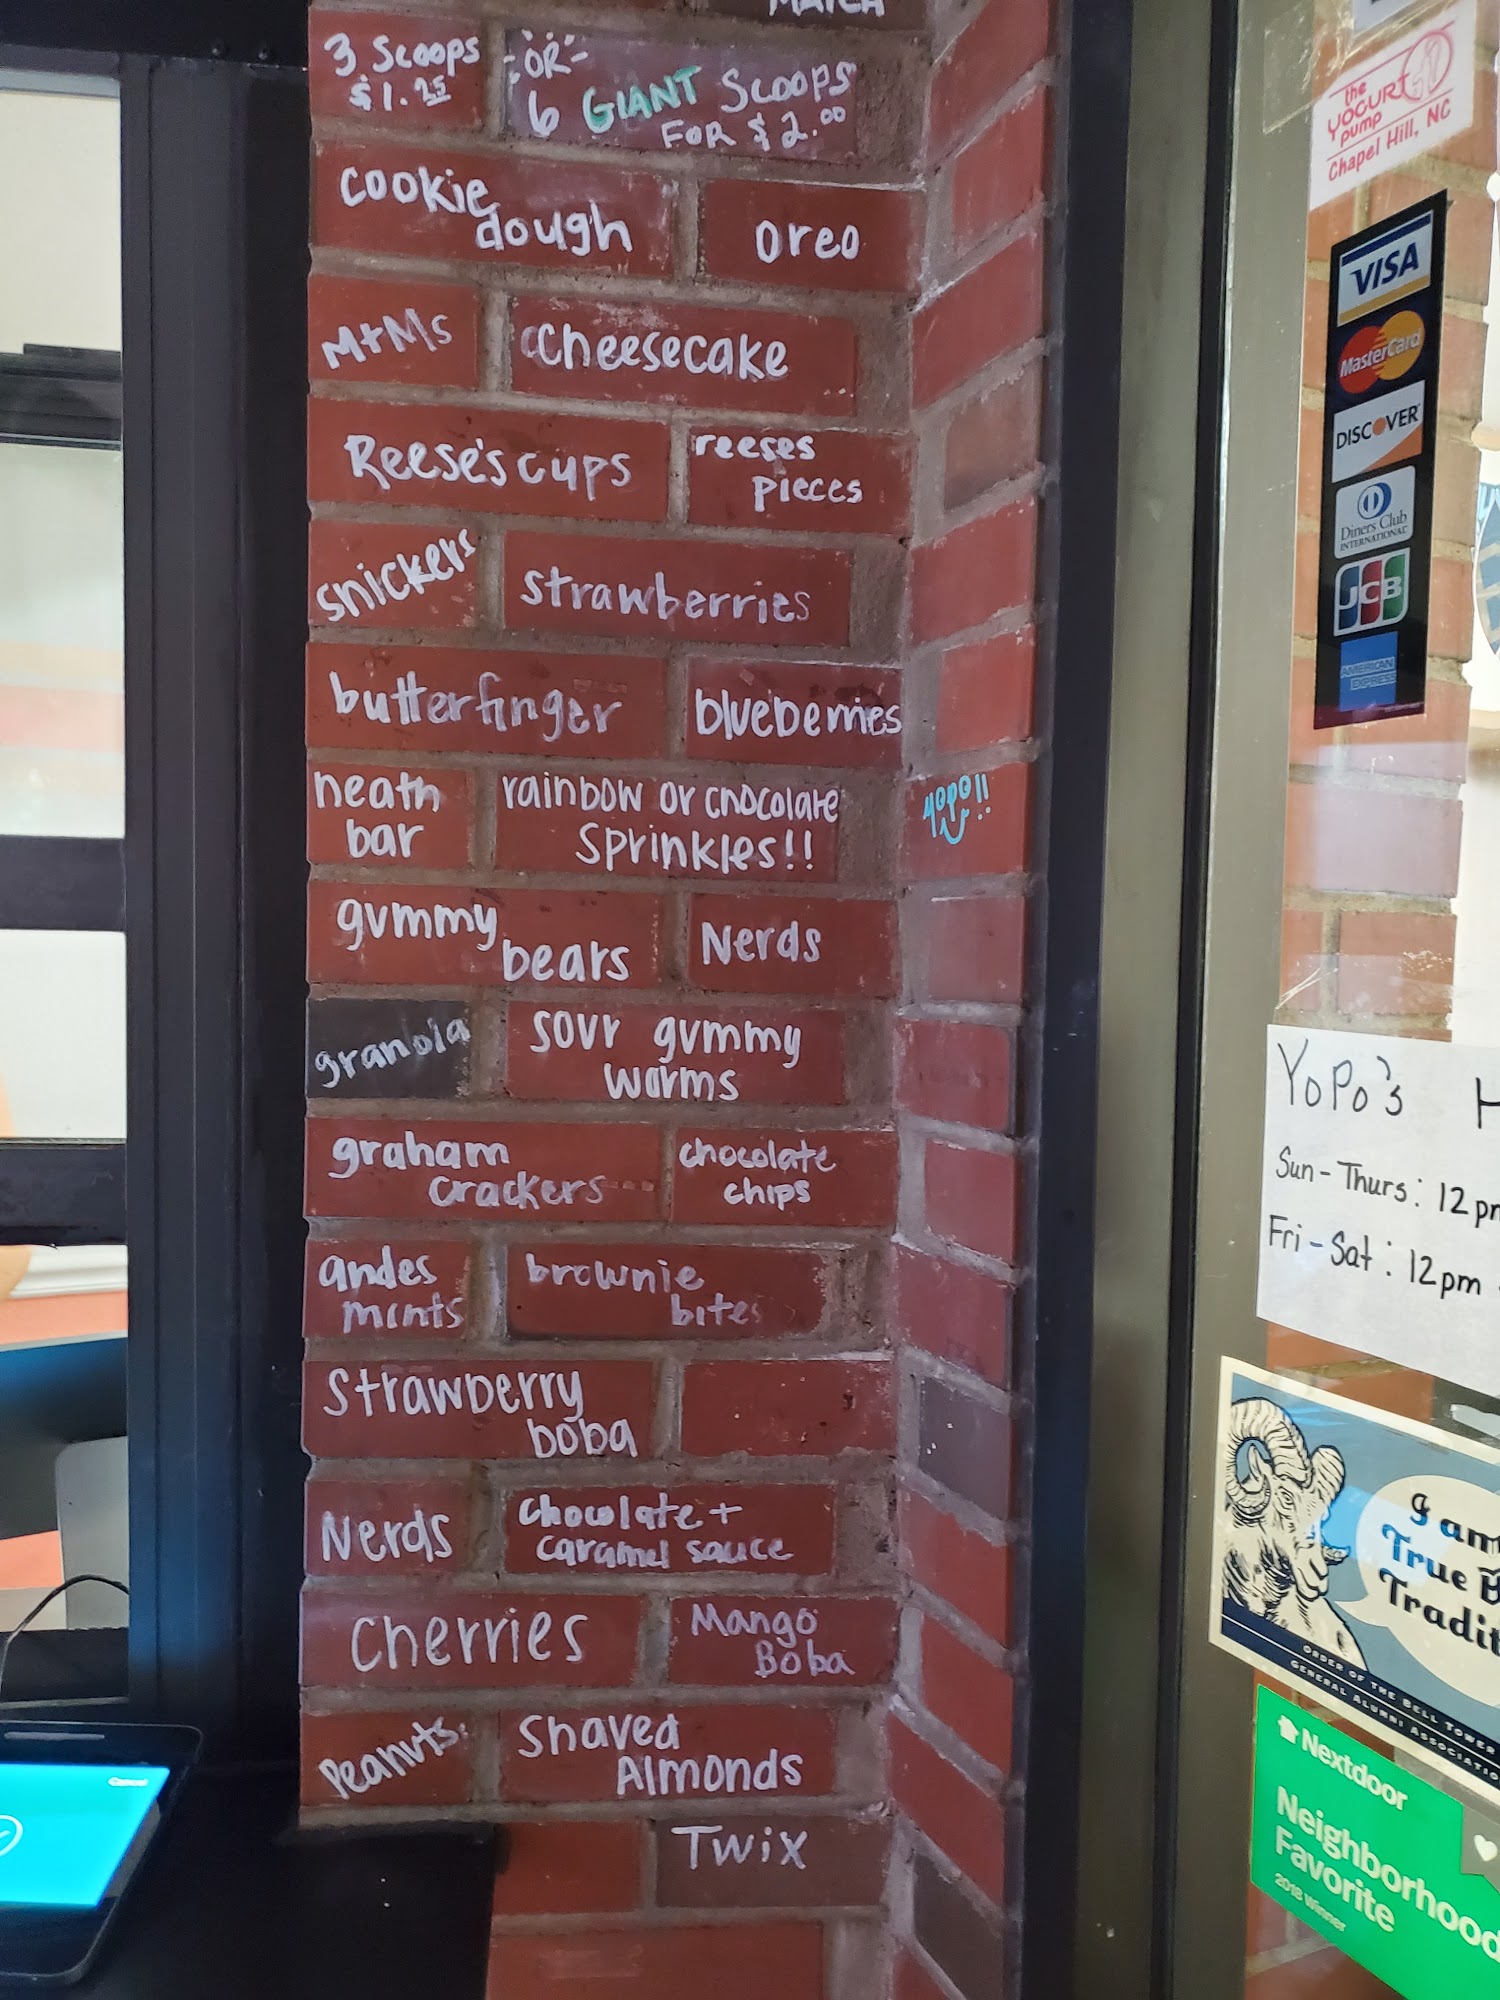 MATCH
3 Scoops
$1.25
-OR-
6 GIANT Scoops
FOR $2.00
cookie
dough
oreo
M+Ms
cheesecake
Reese's cups
reeses
pieces
snickers
strawberries
butterfinger
blueberries
heath
bar
rainbow or chocolate
sprinkles!!
yopo!!
gummy
bears
Nerds
granola
sour gummy
worms
graham
crackers
chocolate
chips
andes
mints
brownie
bites
strawberry
boba
Nerds
chocolate +
caramel sauce
Cherries
Mango
Boba
Peanuts
Shaved
Almonds
Twix
Cancel
the
YOGURT
pump
Chapel Hill, NC
VISA
MasterCard
DISCOVER
Diners Club
INTERNATIONAL
JCB
AMERICAN
EXPRESS
YoPo's H
Sun-Thurs: 12pm
Fri-Sat: 12pm
I am
True B
Tradit
ORDER OF THE BELL TOWER
GENERAL ALUMNI ASSOCIATIO
Nextdoor
Neighborhood
Favorite
2018 Winner